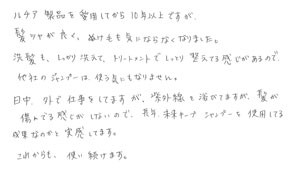 ルチア 製品を愛用してから10年以上ですが、
髪ツヤが良く、ぬけ毛も気にならなくなりました。
洗髪も、しっかり洗えて、トリートメントでしっとり整えてる感じがあるので、
他社のシャンプーは使う気にもなりません。
日中、外で仕事をしてますが、紫外線を浴びてますが、髪が
傷んでる感じがしないので、長年 シャンプーを使用してる
成果なのかと実感してます。
これからも、使い続けます。